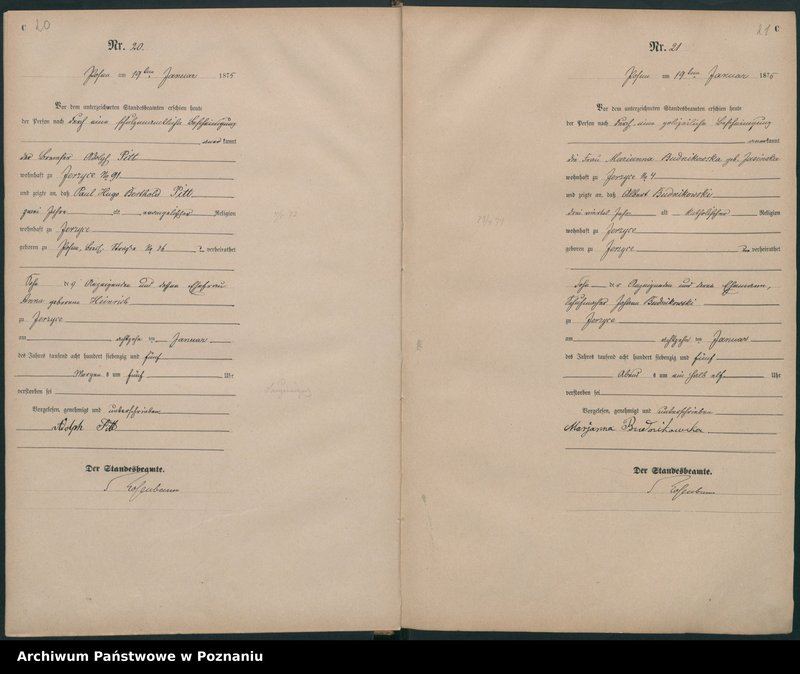 C 20
Nr. 20.
Posen am 19ten Januar 1875
Vor dem unterzeichneten Standesbeamten erschien heute
der Person nach durch eine schulzenamtliche Bescheinigung
anerkannt
der Bremser Adolph Pitt
wohnhaft zu Jerzyce No 91.
und zeigte an, daß Paul Hugo Berthold Pitt
zwei Jahre alt evangelischer Religion
wohnhaft zu Jerzyce
geboren zu Posen, No 26 verheirathet
Sohn des Anzeigenden und dessen Ehefrau
Anna geborene Heinrich
zu Jerzyce
am achtzehn ten Januar
des Jahres tausend acht hundert siebenzig und fünf
Morgens um fünf Uhr
verstorben sei
Vorgelesen, genehmigt und unterschrieben
Adolph Pitt
Der Standesbeamte.
Rosenbaum
21 C
Nr. 21
Posen am 19ten Januar 1875
Vor dem unterzeichneten Standesbeamten erschien heute
der Person nach durch eine polizeiliche Bescheinigung
anerkannt
die Frau Marianna Budnikowska geb. Jasinska
wohnhaft zu Jerzyce No 4
und zeigte an, daß Albert Budnikowski
drei viertel Jahr alt katholischer Religion
wohnhaft zu Jerzyce
geboren zu Jerzyce verheirathet
Sohn der Anzeigenden und deren Ehemann,
Schuhmacher Johann Budnikowski
zu Jerzyce
am achtzehn ten Januar
des Jahres tausend acht hundert siebenzig und fünf
Abend s um ein halb elf Uhr
verstorben sei
Vorgelesen, genehmigt und unterschrieben
Marjanna Budnikowska
Der Standesbeamte.
Rosenbaum
Archiwum Państwowe w Poznaniu